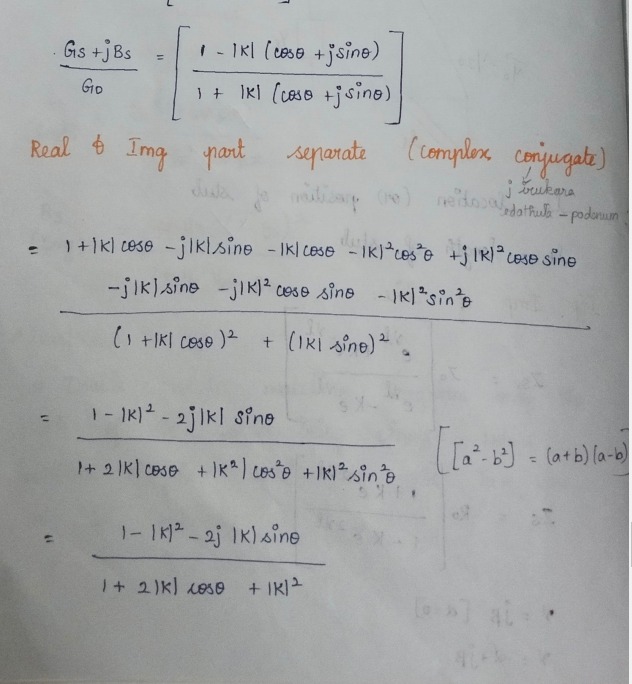 Gs + jBs / G0 = [ 1 - |K| (cosθ + jsinθ) / 1 + |K| (cosθ + jsinθ) ]
Real & Img part separate (complex conjugate)
j irukara
- podanum
= 1 + |K| cosθ - j|K| sinθ - |K| cosθ - |K|² cos²θ + j|K|² cosθ sinθ
- j|K| sinθ - j|K|² cosθ sinθ - |K|² sin²θ
(1 + |K| cosθ)² + (|K| sinθ)².
= 1 - |K|² - 2j|K| sinθ
1 + 2|K| cosθ + |K²| cos²θ + |K|² sin²θ
[[a² - b²] = (a+b)(a-b)]
= 1 - |K|² - 2j |K| sinθ
1 + 2|K| cosθ + |K|²